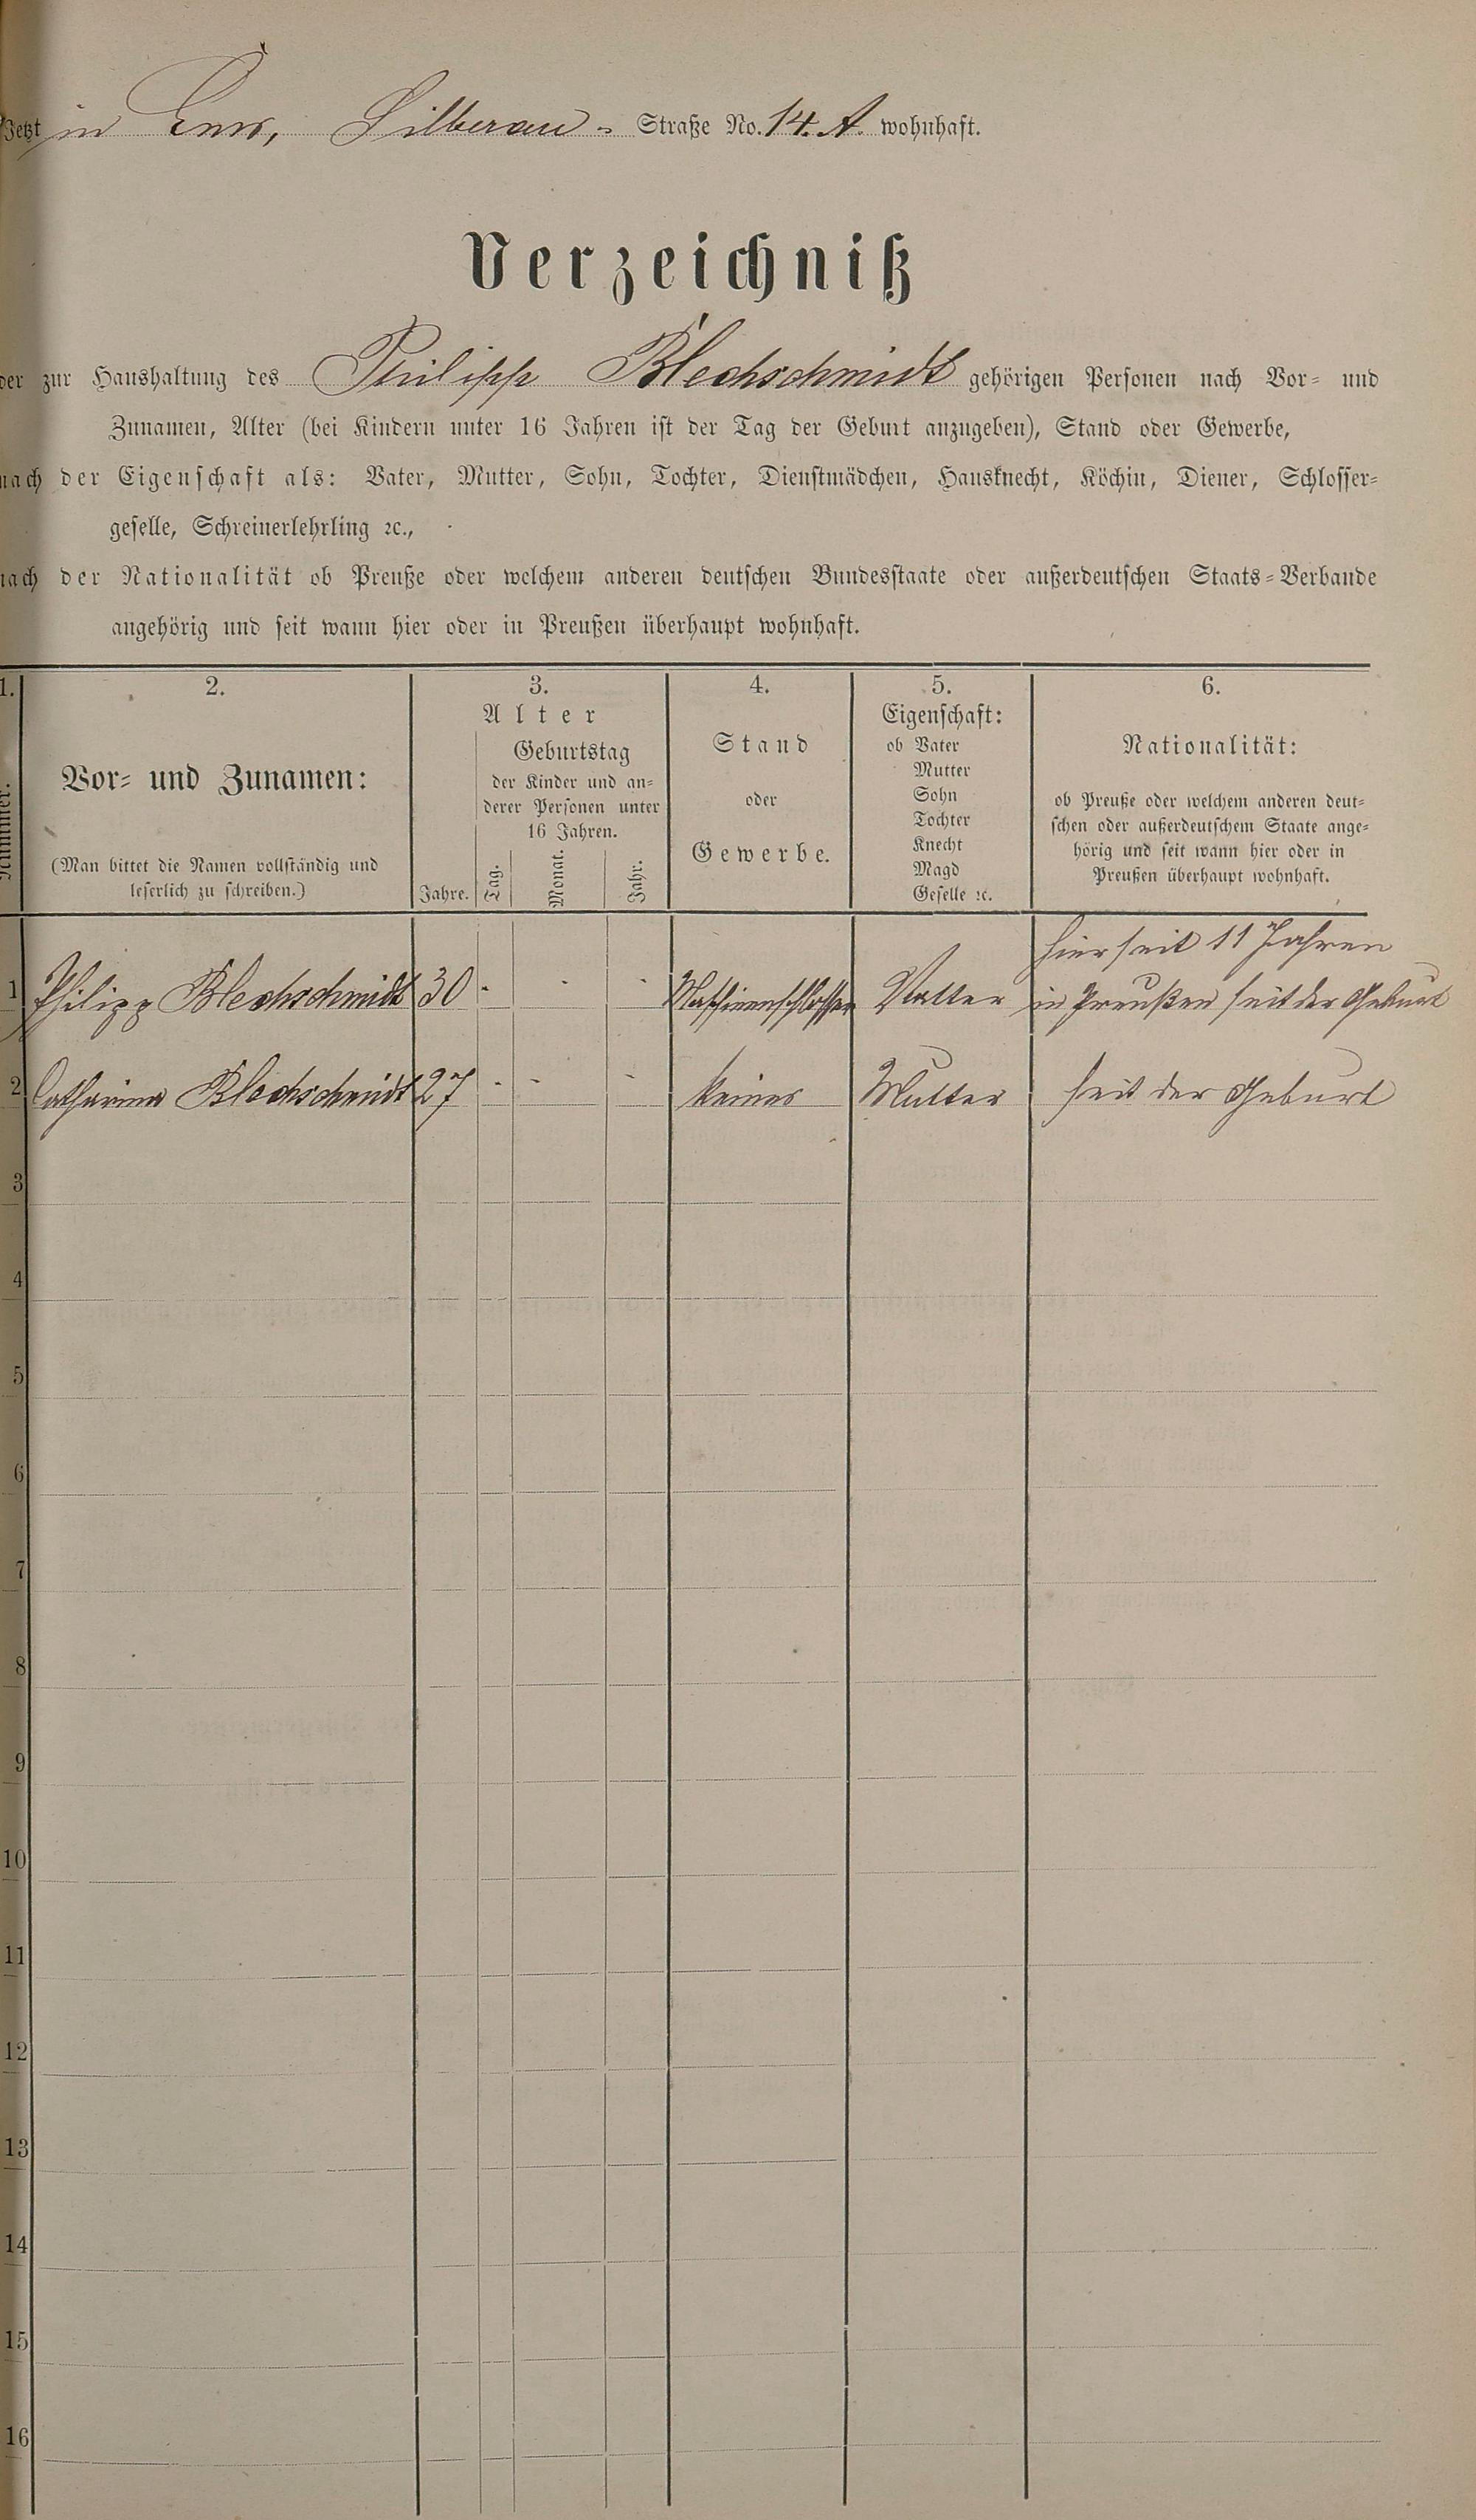 Jetzt in Ems, Silberau - Straße No. 14. A. wohnhaft.
Verzeichniß
der zur Haushaltung des Philipp Blechschmidt gehörigen Personen nach Vor- und
Zunamen, Alter (bei Kindern unter 16 Jahren ist der Tag der Geburt anzugeben), Stand oder Gewerbe,
nach der Eigenschaft als: Vater, Mutter, Sohn, Tochter, Dienstmädchen, Hausknecht, Köchin, Diener, Schlosser-
geselle, Schreinerlehrling ꝛc.,
nach der Nationalität ob Preuße oder welchem anderen deutschen Bundesstaate oder außerdeutschen Staats-Verbande
angehörig und seit wann hier oder in Preußen überhaupt wohnhaft.
1. 2. 3. 4. 5. 6.
Nummer.
Vor- und Zunamen:
(Man bittet die Namen vollständig und
leserlich zu schreiben.)
Alter
Jahre.
Geburtstag
der Kinder und an-
derer Personen unter
16 Jahren.
Tag. Monat. Jahr.
Stand
oder
Gewerbe.
Eigenschaft:
ob Vater
Mutter
Sohn
Tochter
Knecht
Magd
Geselle ꝛc.
Nationalität:
ob Preuße oder welchem anderen deut-
schen oder außerdeutschem Staate ange-
hörig und seit wann hier oder in
Preußen überhaupt wohnhaft.
hier seit 11 Jahren
1 Philipp Blechschmidt 30 - - - Maschinenschlosser Vatter in Preußen seit der Geburt
2 Catharina Blechschmidt 27 - - - keines Mutter seit der Geburt
3
4
5
6
7
8
9
10
11
12
13
14
15
16